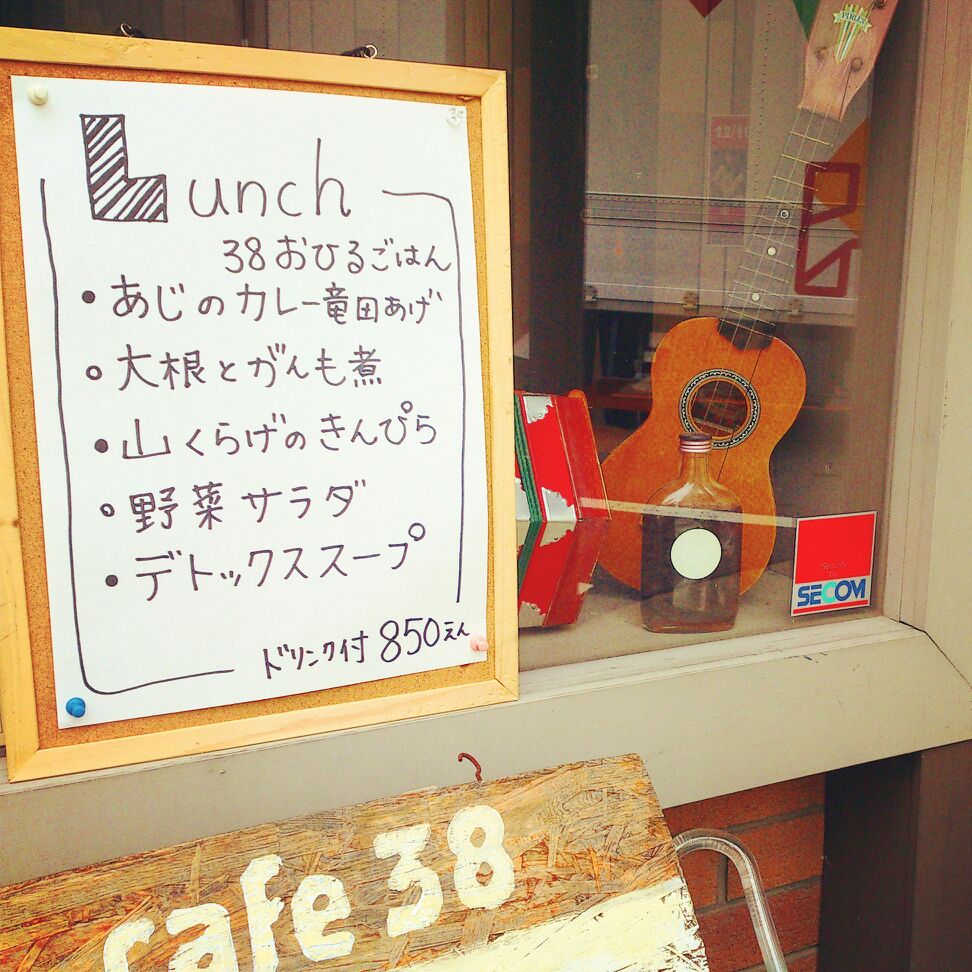 Lunch
38おひるごはん
・あじのカレー竜田あげ
○大根とがんも煮
・山くらげのきんぴら
○野菜サラダ
・デトックススープ
ドリンク付850えん
12/16
Security
by
SECOM
cafe 38